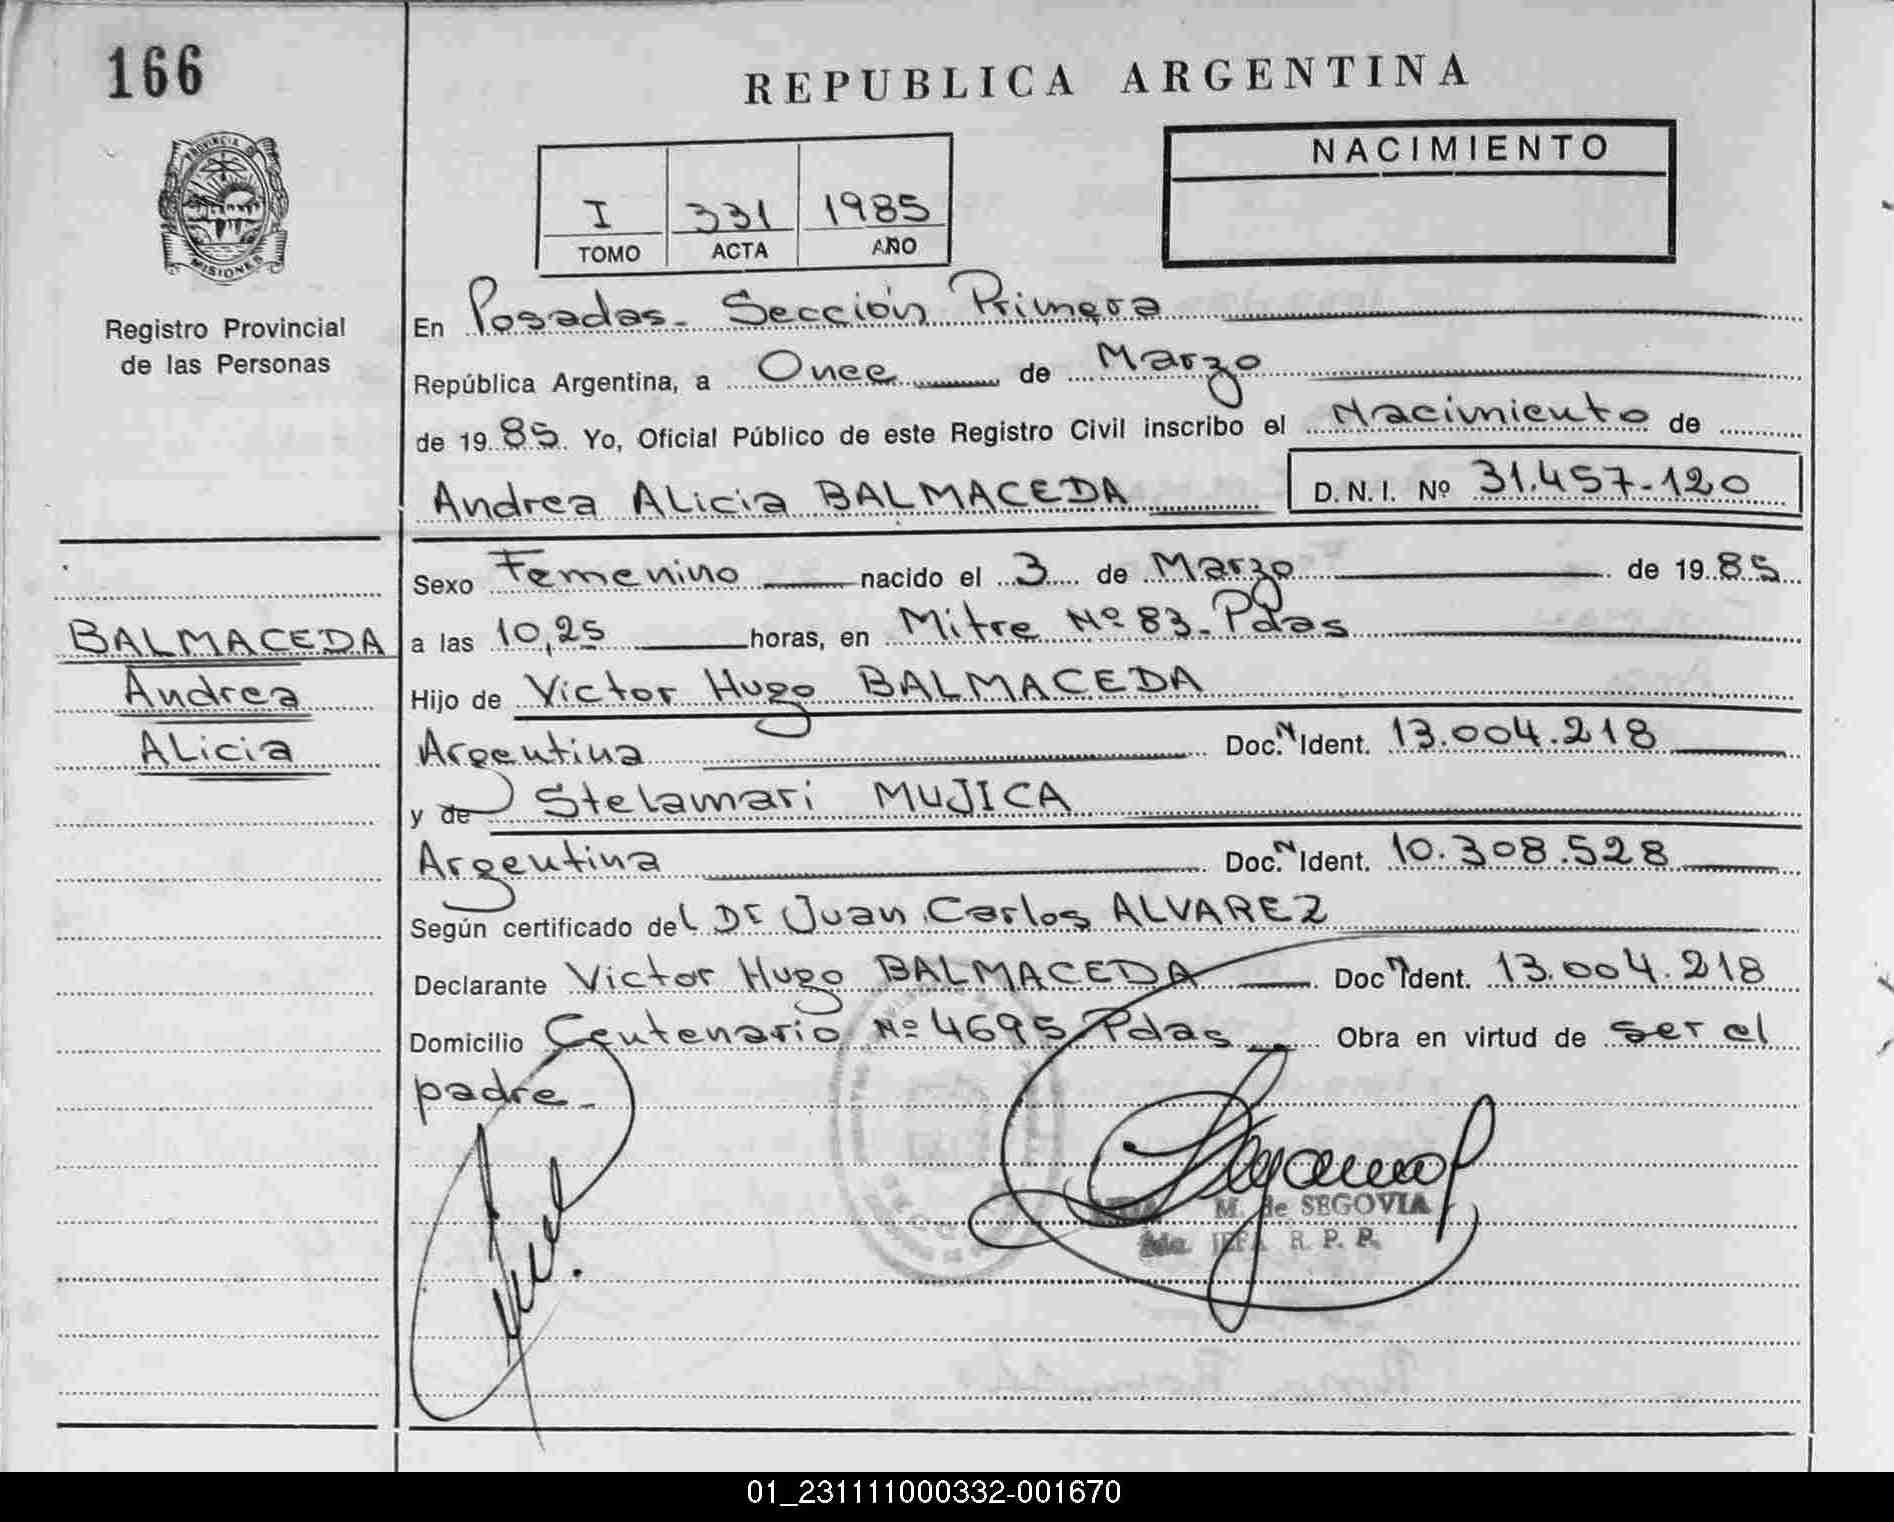 166
PROVINCIA D
MISIONES
Registro Provincial
de las Personas
REPUBLICA ARGENTINA
I 331 1985
TOMO ACTA AÑO
NACIMIENTO
En Posadas - Sección Primera
República Argentina, a Once de Marzo
de 1985. Yo, Oficial Público de este Registro Civil inscribo el Nacimiento de
Andrea ALicia BALMACEDA D.N.I. Nº 31.457-120
Sexo Femenino nacido el 3 de Marzo de 1985
BALMACEDA
Andrea
ALicia
a las 10,25 horas, en Mitre Nº 83 - Pdas
Hijo de Victor Hugo BALMACEDA
Argentina Doc. N Ident. 13.004.218
y de Stelamari MUJICA
Argentina Doc. N Ident. 10.308.528
Según certificado del Dr Juan Carlos ALVAREZ
Declarante Victor Hugo BALMACEDA Doc N Ident. 13.004.218
Domicilio Centenario Nº 4695 Pdas Obra en virtud de ser el
padre -
M. de SEGOVIA
JEFA R. P. P.
01_231111000332-001670